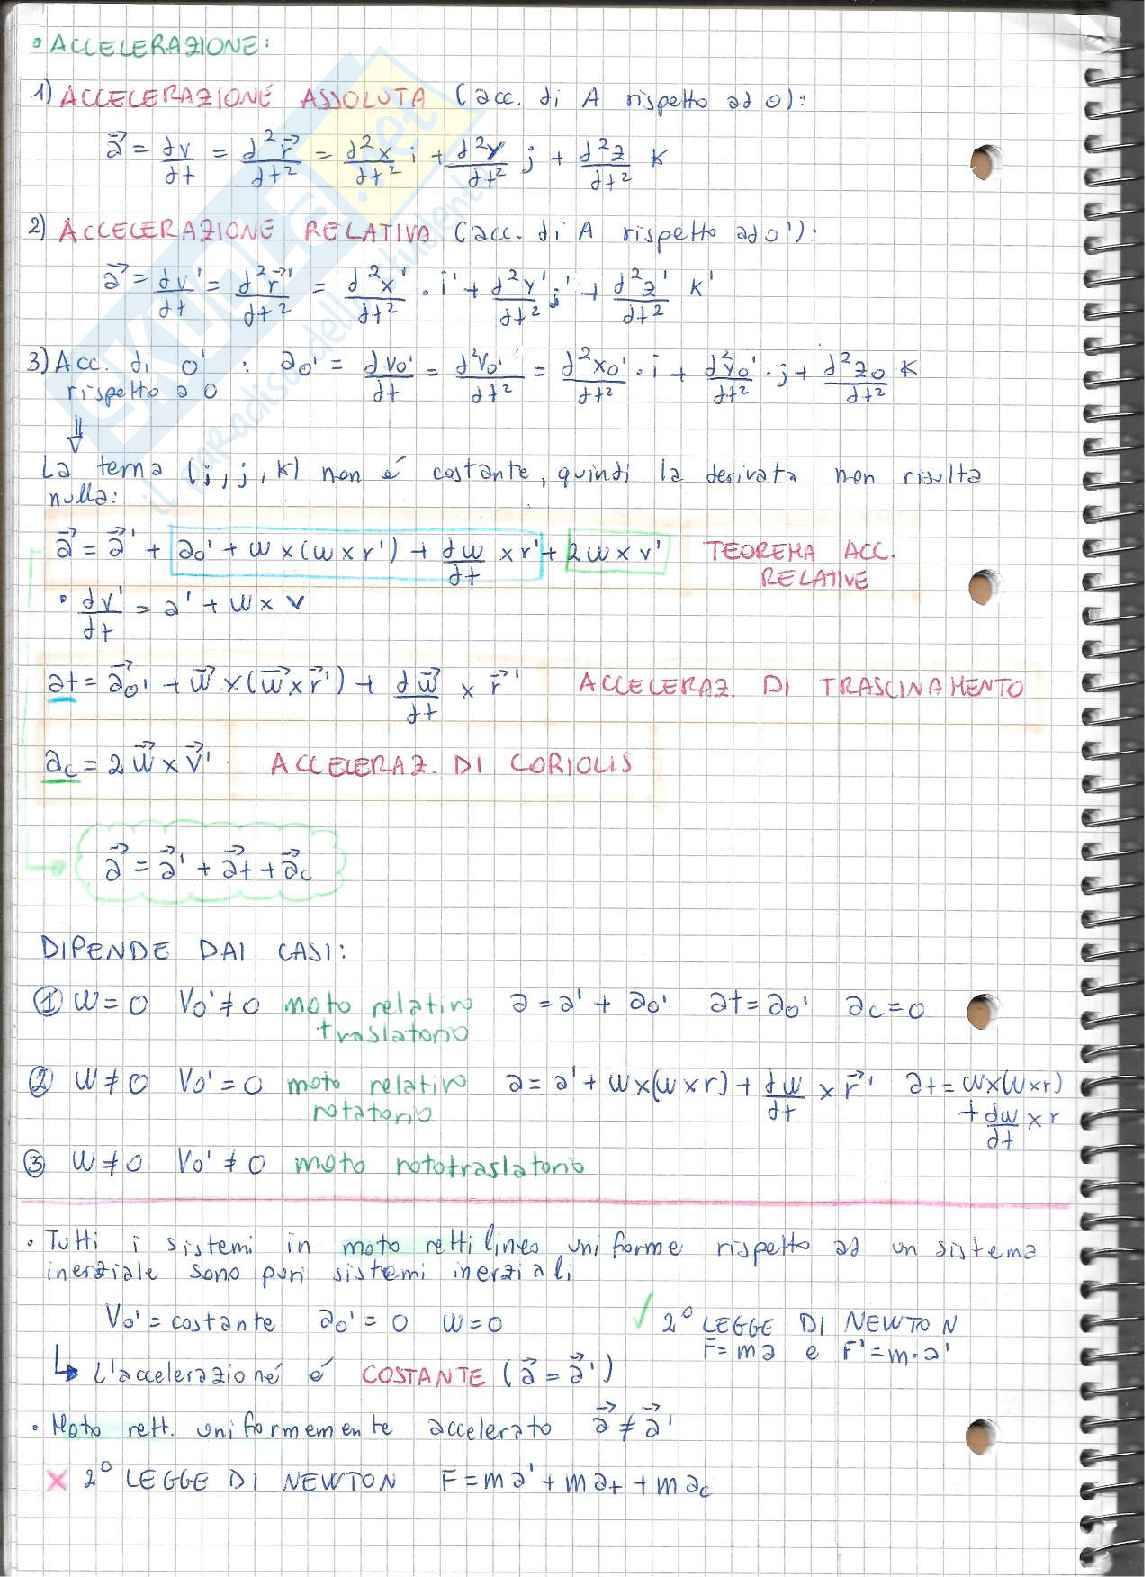 • ACCELERAZIONE:
1) ACCELERAZIONE ASSOLUTA (acc. di A rispetto ad O):
a⃗ = dv/dt = d²r⃗/dt² = d²x/dt² i + d²y/dt² j + d²z/dt² K
2) ACCELERAZIONE RELATIVA (acc. di A rispetto ad O'):
a⃗' = dv'/dt = d²r⃗'/dt² = d²x'/dt² · i' + d²y'/dt² j' + d²z'/dt² K'
3) Acc. di O' : a₀' = dv₀'/dt = d²v₀'/dt² = d²x₀'/dt² · i + d²y₀'/dt² · j + d²z₀/dt² K
rispetto a O
⇓
La terna (i, j, K) non é costante, quindi la derivata non risulta
nulla:
a⃗ = a⃗' + a₀' + w × (w × r') + dw/dt × r' + 2w × v' TEOREMA ACC.
RELATIVE
• dv'/dt = a' + w × v
at = a⃗₀' + w⃗ × (w⃗ × r⃗') + dw⃗/dt × r⃗' ACCELERAZ. DI TRASCINAMENTO
ac = 2 w⃗ × v⃗' ACCELERAZ. DI CORIOLIS
a⃗ = a⃗' + a⃗t + a⃗c
DIPENDE DAI CASI:
① w = 0 V₀' ≠ 0 moto relativo a = a' + a₀' at = a₀' ac = 0
traslatorio
② w ≠ 0 V₀' = 0 moto relativo a = a' + w × (w × r) + dw/dt × r⃗' at = w × (w × r)
rotatorio + dw/dt × r
③ w ≠ 0 V₀' ≠ 0 moto rototraslatorio
• Tutti i sistemi in moto rettilineo uniforme rispetto ad un sistema
inerziale sono puri sistemi inerziali
V₀' = costante a₀' = 0 w = 0 ✓ 2° LEGGE DI NEWTON
F = ma e F' = m·a'
↳ L'accelerazione é COSTANTE (a⃗ = a⃗')
• Moto rett. uniformemente accelerato a⃗ ≠ a⃗'
✗ 2° LEGGE DI NEWTON F = ma' + mat + mac